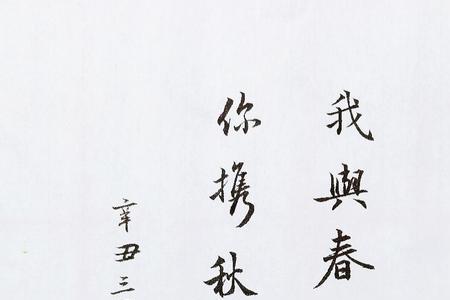 我與春
你携秋
辛丑三